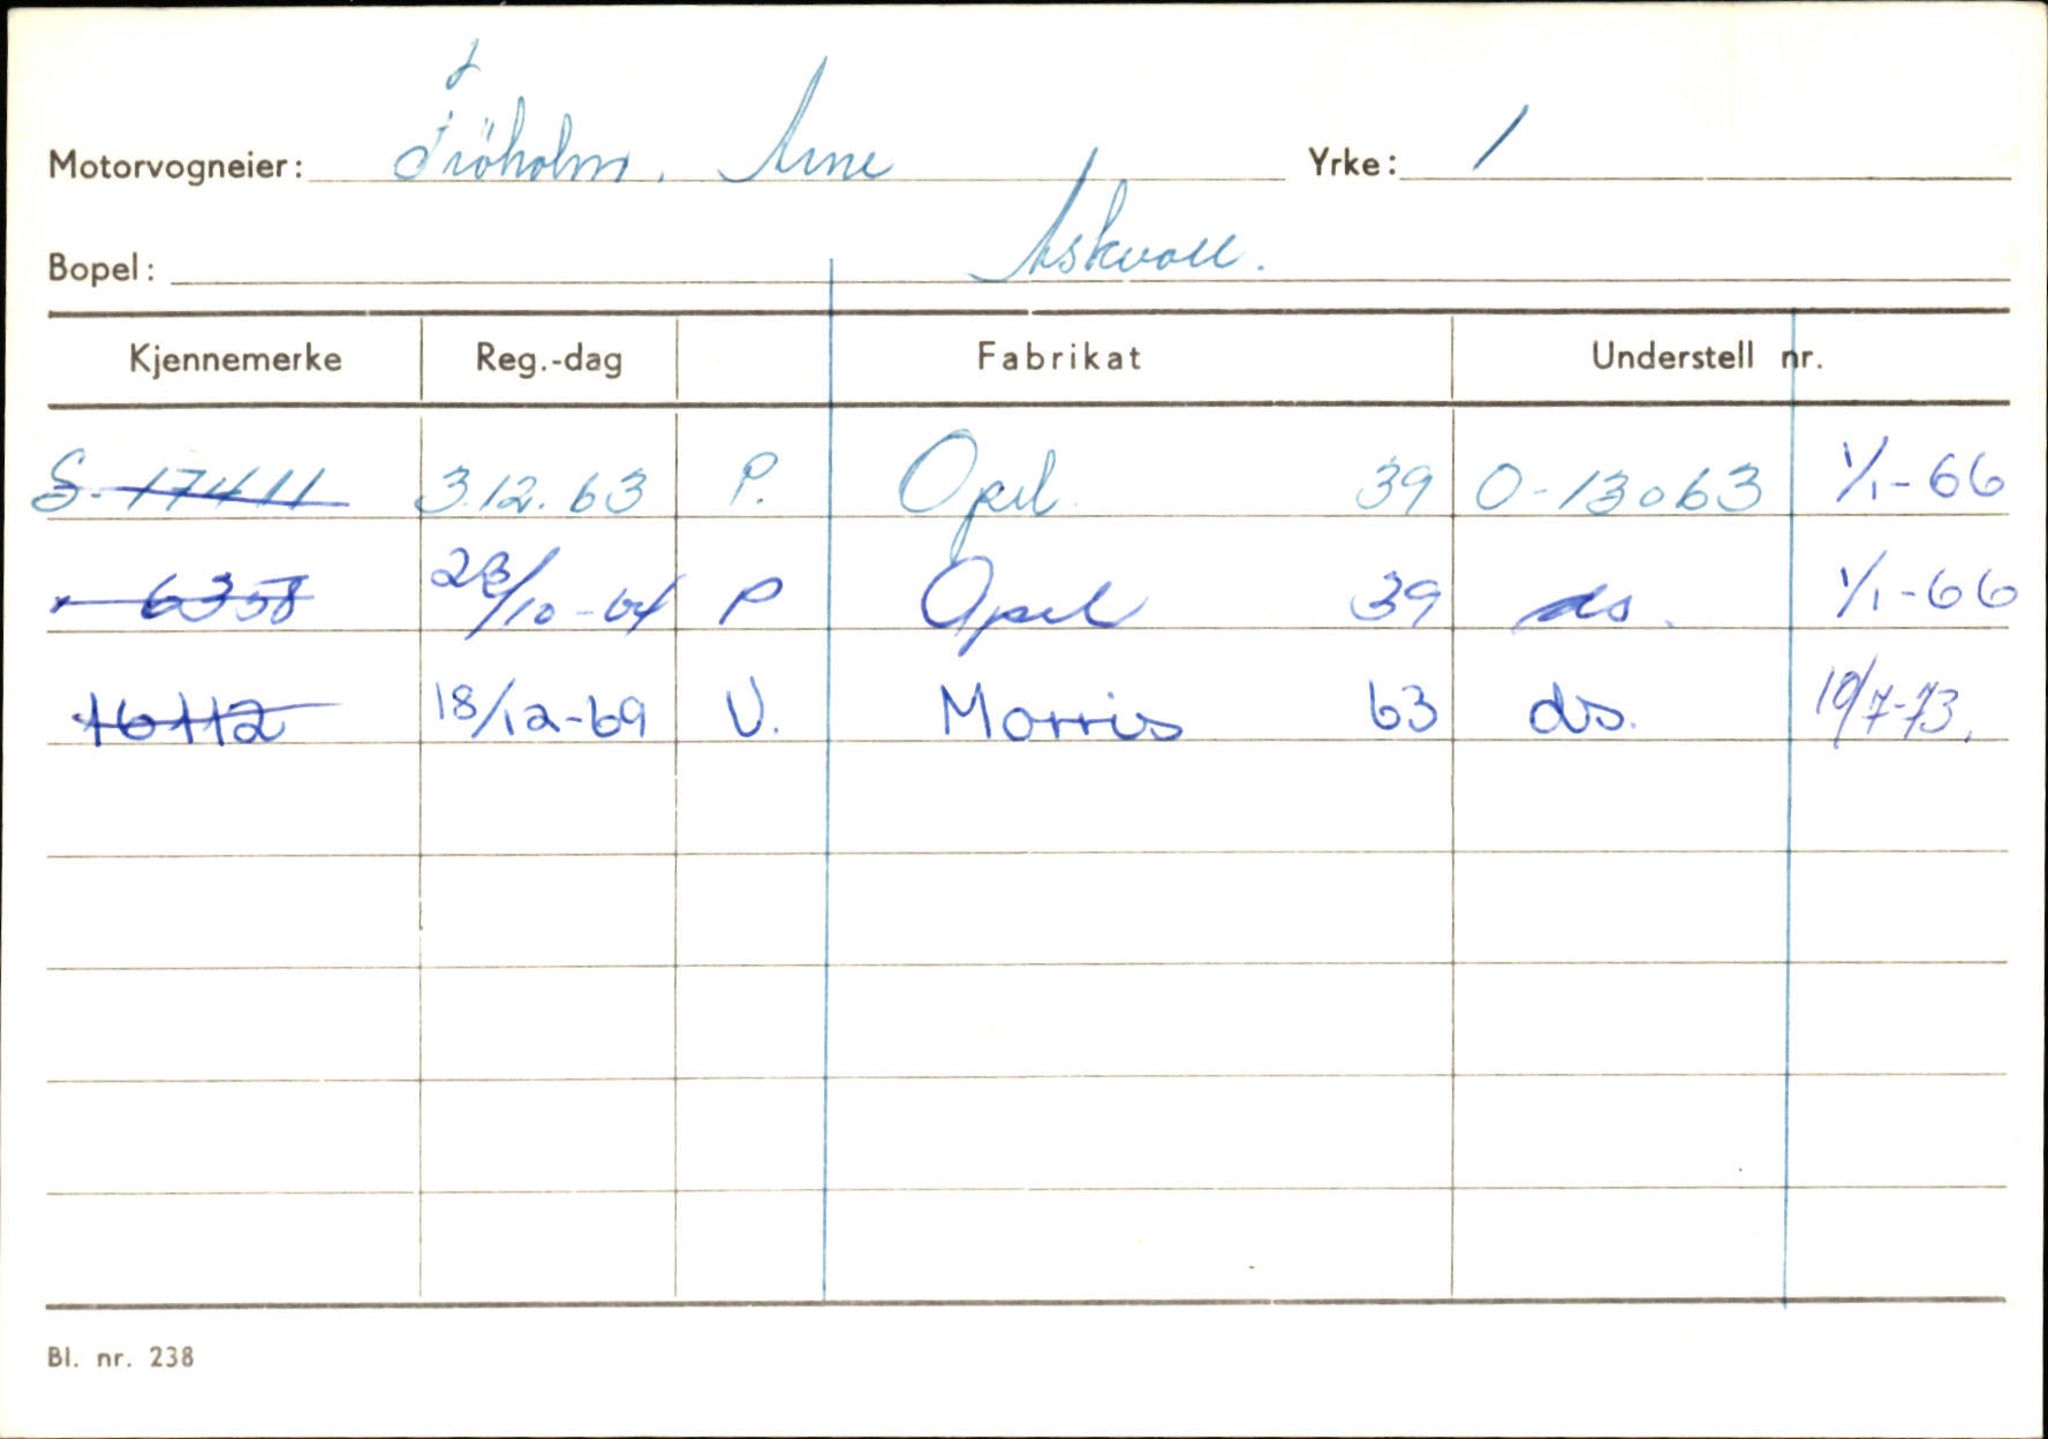 Motorvogneier: Fröholm. Arne Yrke: 1
Bopel: Askvoll.
Kjennemerke Reg.-dag Fabrikat Understell nr.
S-17411 3.12.63 P. Opel. 39 O-13063 1/1-66
" 6358 28/10-64 P Opel 39 ds. 1/1-66
16112 18/12-69 V. Morris 63 ds. 10/7-73.
Bl. nr. 238